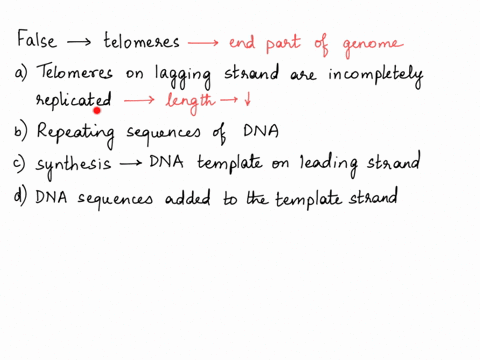 False → telomeres → end part of genome
a) Telomeres on lagging strand are incompletely
replicated → length → ↓
b) Repeating sequences of DNA
c) synthesis → DNA template on leading strand
d) DNA sequences added to the template strand